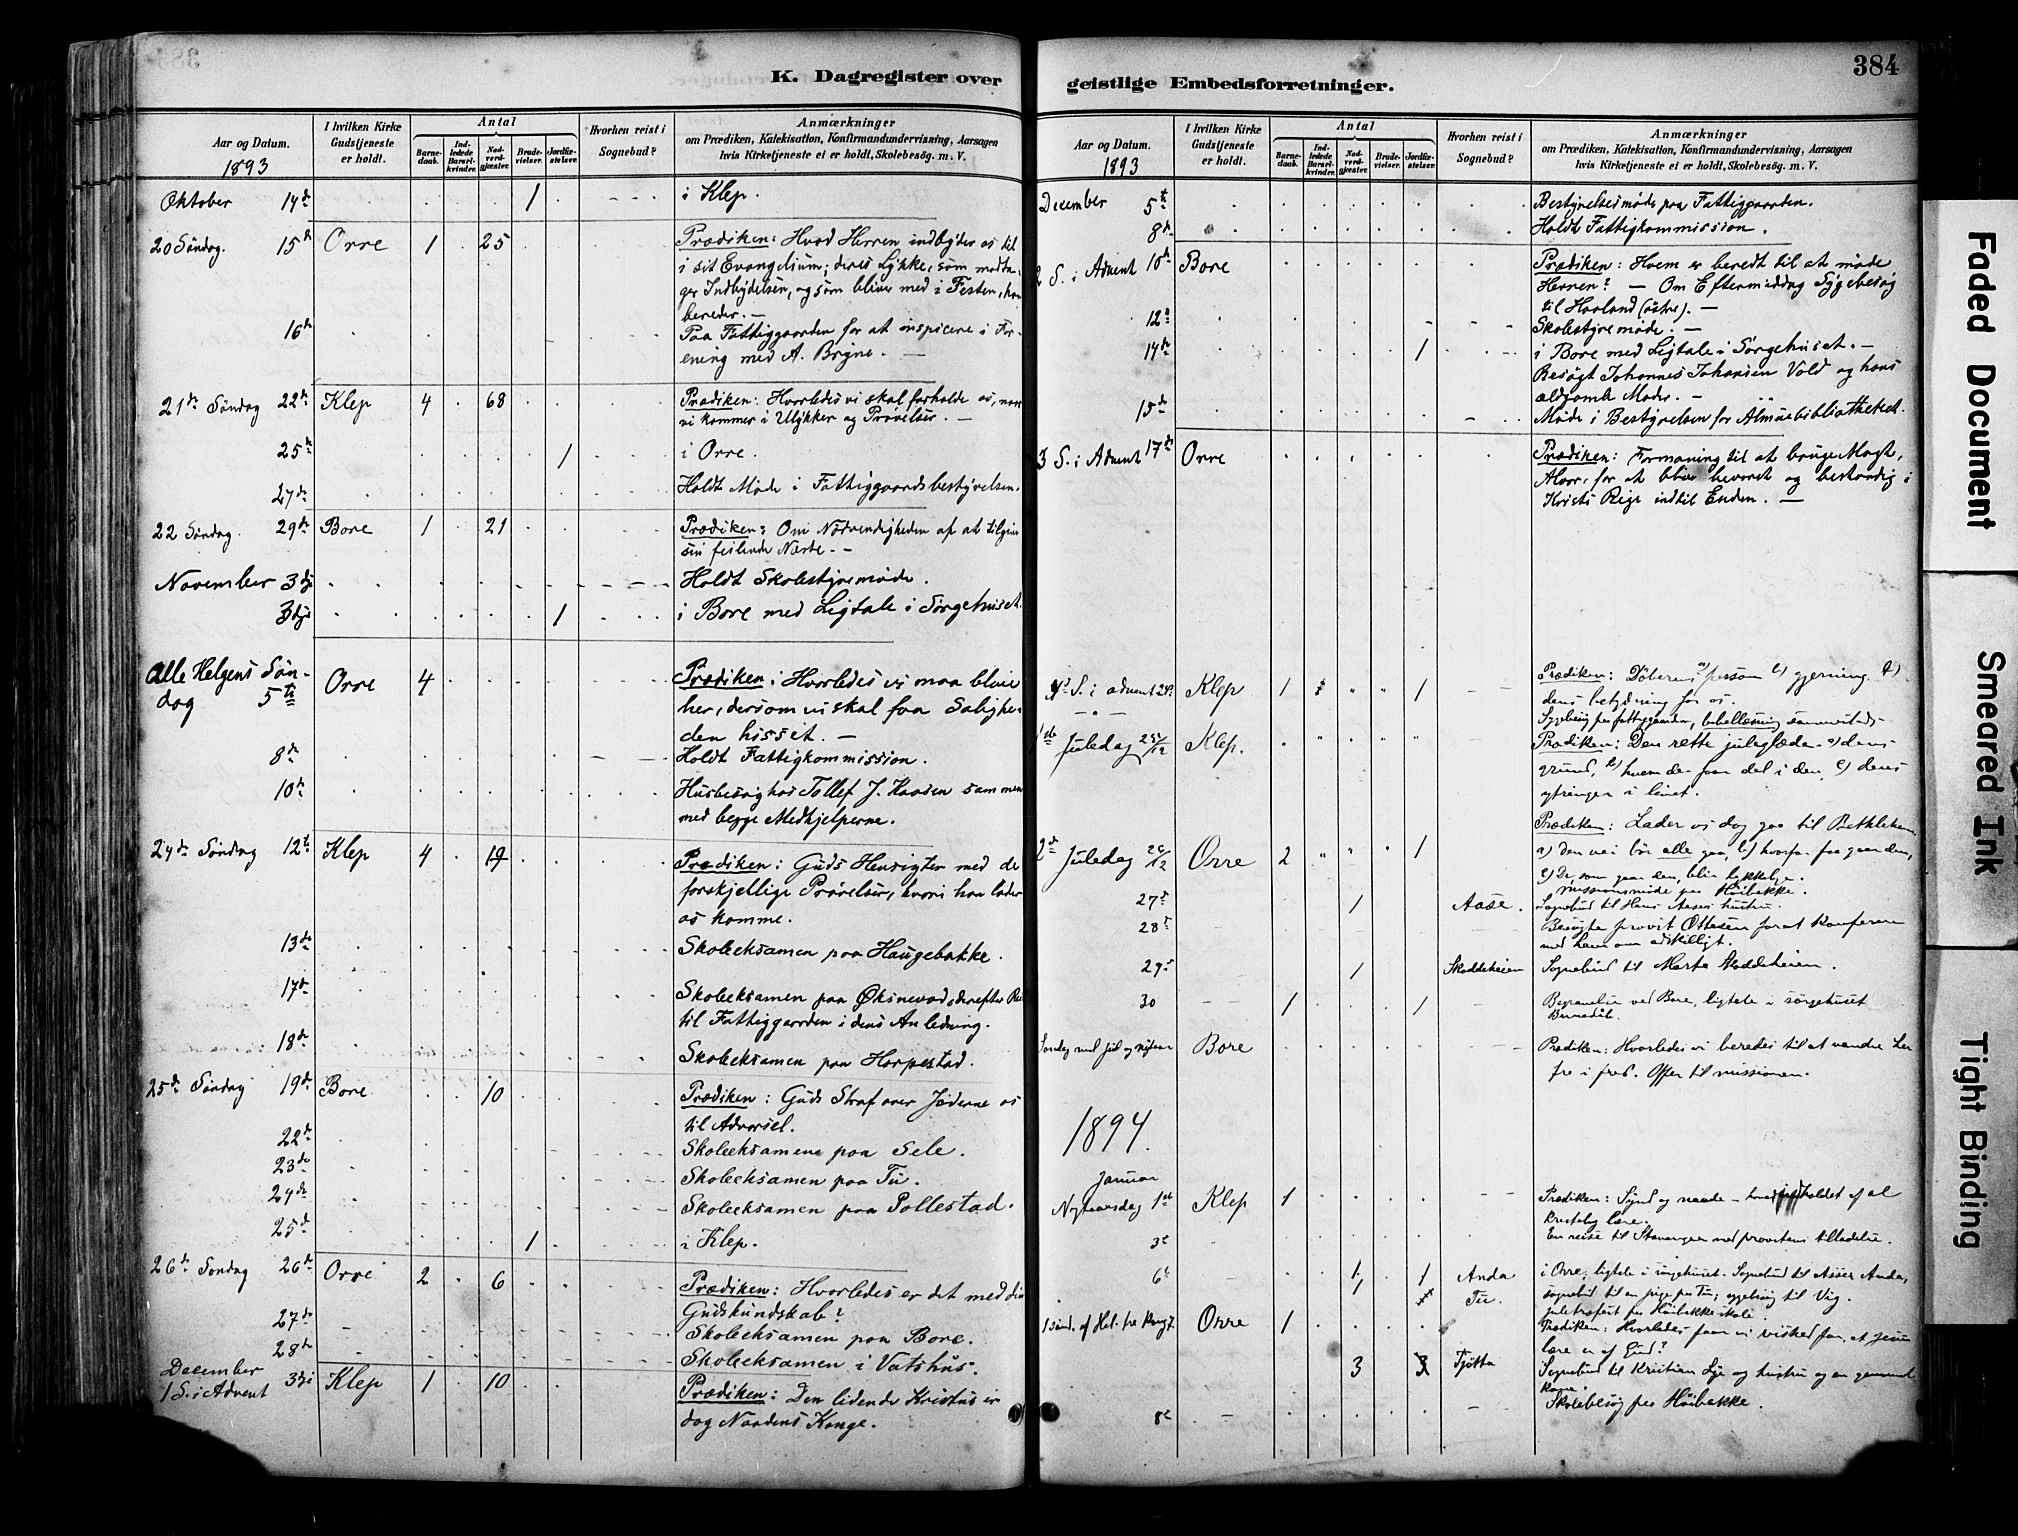 K. Dagregister over
Aar og Datum.
1893
I hvilken Kirke
Gudstjeneste
er holdt.
Antal
Barne-
daab.
Ind-
ledede
Barsel-
kvinder.
Nad-
verd-
gjæster.
Brude-
vielser.
Jordfæ-
stelser.
Hvorhen reist i
Sognebud?
Anmærkninger
om Prædiken, Katekisation, Konfirmandundervisning, Aarsagen
hvis Kirketjeneste ei er holdt, Skolebesøg. m. V.
Oktober 14de 1 i Klep.
20 Søndag. 15de Orre 1 25 Prædiken: Hvad Herren indbyder os til
i sit Evangelium; deres Lykke, som modta-
ger Indbydelsen, og som bliver med i Festen, han
bereder. —
16de Paa Fattiggaarden for at inspicere i For-
ening med A. Bryne. —
21de Søndag 22de Klep 4 68 Prædiken: Hvorledes vi skal forholde os, naar
vi kommer i Ulykker og Prøvelser. —
25de 1 i Orre.
27de Holdt Møde i Fattiggaardsbestyrelsen.
22 Søndag. 29de Bore 1 21 Prædiken: Om Nødvendigheden af at tilgive
sin feilende Næste. —
November 3dje Holdt Skolestyremøde.
3dje 1 i Bore med Ligtale i Sørgehuset.
Alle Helgens Søn-
dag 5te Orre 4 Prædiken: Hvorledes vi maa blive
her, dersom vi skal faa Salighe-
den hisset. —
8de Holdt Fattigkommission.
10de Husbesøg hos Tollef J. Kaasen sammen
med begge Medhjelperne.
24de Søndag 12te Klep 4 19 Prædiken: Guds Hensigter med de
forskjellige Prøvelser, hvori han lader
os komme.
13de Skoleeksamen paa Haugebakke.
17de Skoleeksamen paa Øksnevad, derefter
til Fattiggaarden i dens Anledning.
18de Skoleeksamen paa Horpestad.
25de Søndag 19de Bore 10 Prædiken: Guds Straf over Jøderne os
til Advarsel.
22de Skoleeksamene paa Sele.
23de Skoleeksamen paa Tu.
24de Skoleeksamen paa Pollestad.
25de 1 i Klep.
26de Søndag 26de Orre 2 6 Prædiken: Hvorledes er det med din
Gudskundskab?
27de Skoleeksamen paa Bore.
28de Skoleeksamen i Vatshus.
December
1 S. i Advent 3dje Klep 1 10 Prædiken: Den lidende Kristus er
dog Naadens Konge.
geistlige Embedsforretninger.
384
Aar og Datum.
1893
I hvilken Kirke
Gudstjeneste
er holdt.
Antal
Barne-
daab.
Ind-
ledede
Barsel-
kvinder.
Nad-
verd-
gjæster.
Brude-
vielser.
Jordfæ-
stelser.
Hvorhen reist i
Sognebud?
Anmærkninger
om Prædiken, Katekisation, Konfirmandundervisning, Aarsagen
hvis Kirketjeneste ei er holdt, Skolebesøg. m. V.
December 5te Bestyrelsesmøde paa Fattiggaarden.
8de Holdt Fattigkommission.
2 S. i Advent 10de Bore Prædiken: Hvem er beredt til at møde
Herren? — Om Eftermiddag Sygebesøg
til Haaland (østre). —
12te Skolestyremøde. —
14de 1 i Bore med Ligtale i Sørgehuset. —
Besøgt Johannes Johansen Vold og hans
aldgamle Moder. —
15de Møde i Bestyrelsen for Almuebibliotheket.
3 S. i Advent 17de Orre Prædiken: Formaning til at bruge Magt,
Alvor, for at blive bevaret og bestandig i
Kristi Rige indtil Enden. —
4de S. i advent 24de Klep 1 1 Prædiken: Døberens a) person b) gjerning c)
dens betydning for os.
Sygebesøg paa fattiggaarden, bibellæsning
1ste Juledag 25/12 Klep. Prædiken: Den rette juleglæde. a) dens
grund, b) hvem der faar del i den, c) dens
ytringer i livet.
2de Juledag 26/12 Orre 2 1 Prædiken: Lader os dog gaa til Bethlehem
a) Den vei bør alle gaa, b) hvorfor faa gaar den,
c) De, som gaar den, blir lykkelige.
missionsmøde paa Høibakke.
27de 1 Aase. Sognebud til Hans Aases hustru.
28de Besøgte provst Ottesen forat konferere
med ham om adskilligt.
29de 1 Skaddeheien Sognebud til Marta Skaddeheien.
30 1 1 Begravelse ved Bore, ligtale i sørgehuset
Barnedåb.
Søndag mel. jul og nytaar Bore Prædiken: Hvorledes vi beredes til at vandre her
fra i fred. Offer til missionen.
1894.
Januar
Nytaarsdag 1ste Klep 1 Prædiken: Synd og naade — hovedindholdet af al
kristelig lære.
3de En reise til Stavanger med provstens tilladelse.
6te 1 1 Anda i Orre, ligtale i sørgehuset. Sognebud til Asser Anda,
1 Tu. sognebud til en pige paa Tu; sygebesøg til Vig.
juletræfest paa Høibakke skole.
1 sønd. af Hel. tre Kong. 7. Orre 1 Prædiken: Hvorledes faar vi vished for, at Jesu
lære er af Gud?
3 Tjøtta Sognebud til Kristian Lye og hustru og en gammel
kone.
8de Skolebesøg paa Høibakke.
Faded Document
Smeared Ink
Tight Binding